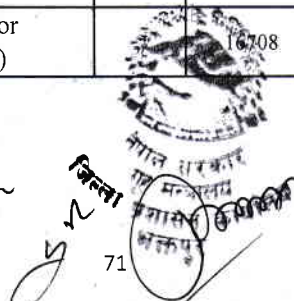 or
)
16708
नेपाल सरकार
गृह मन्त्रालय
जिल्ला
प्रशासन
भक्तपुर
71